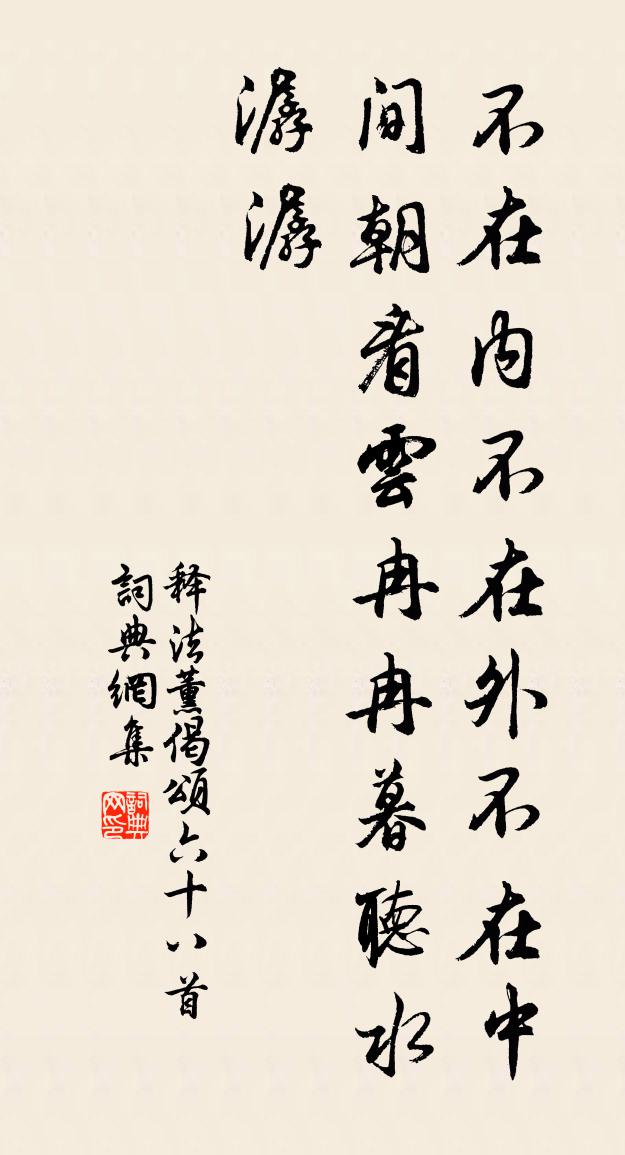 不在内不在外不在中
间朝看雲冉冉暮聴水
潺潺
释法薰偈頌六十八首
詞典網集
詞典
网印